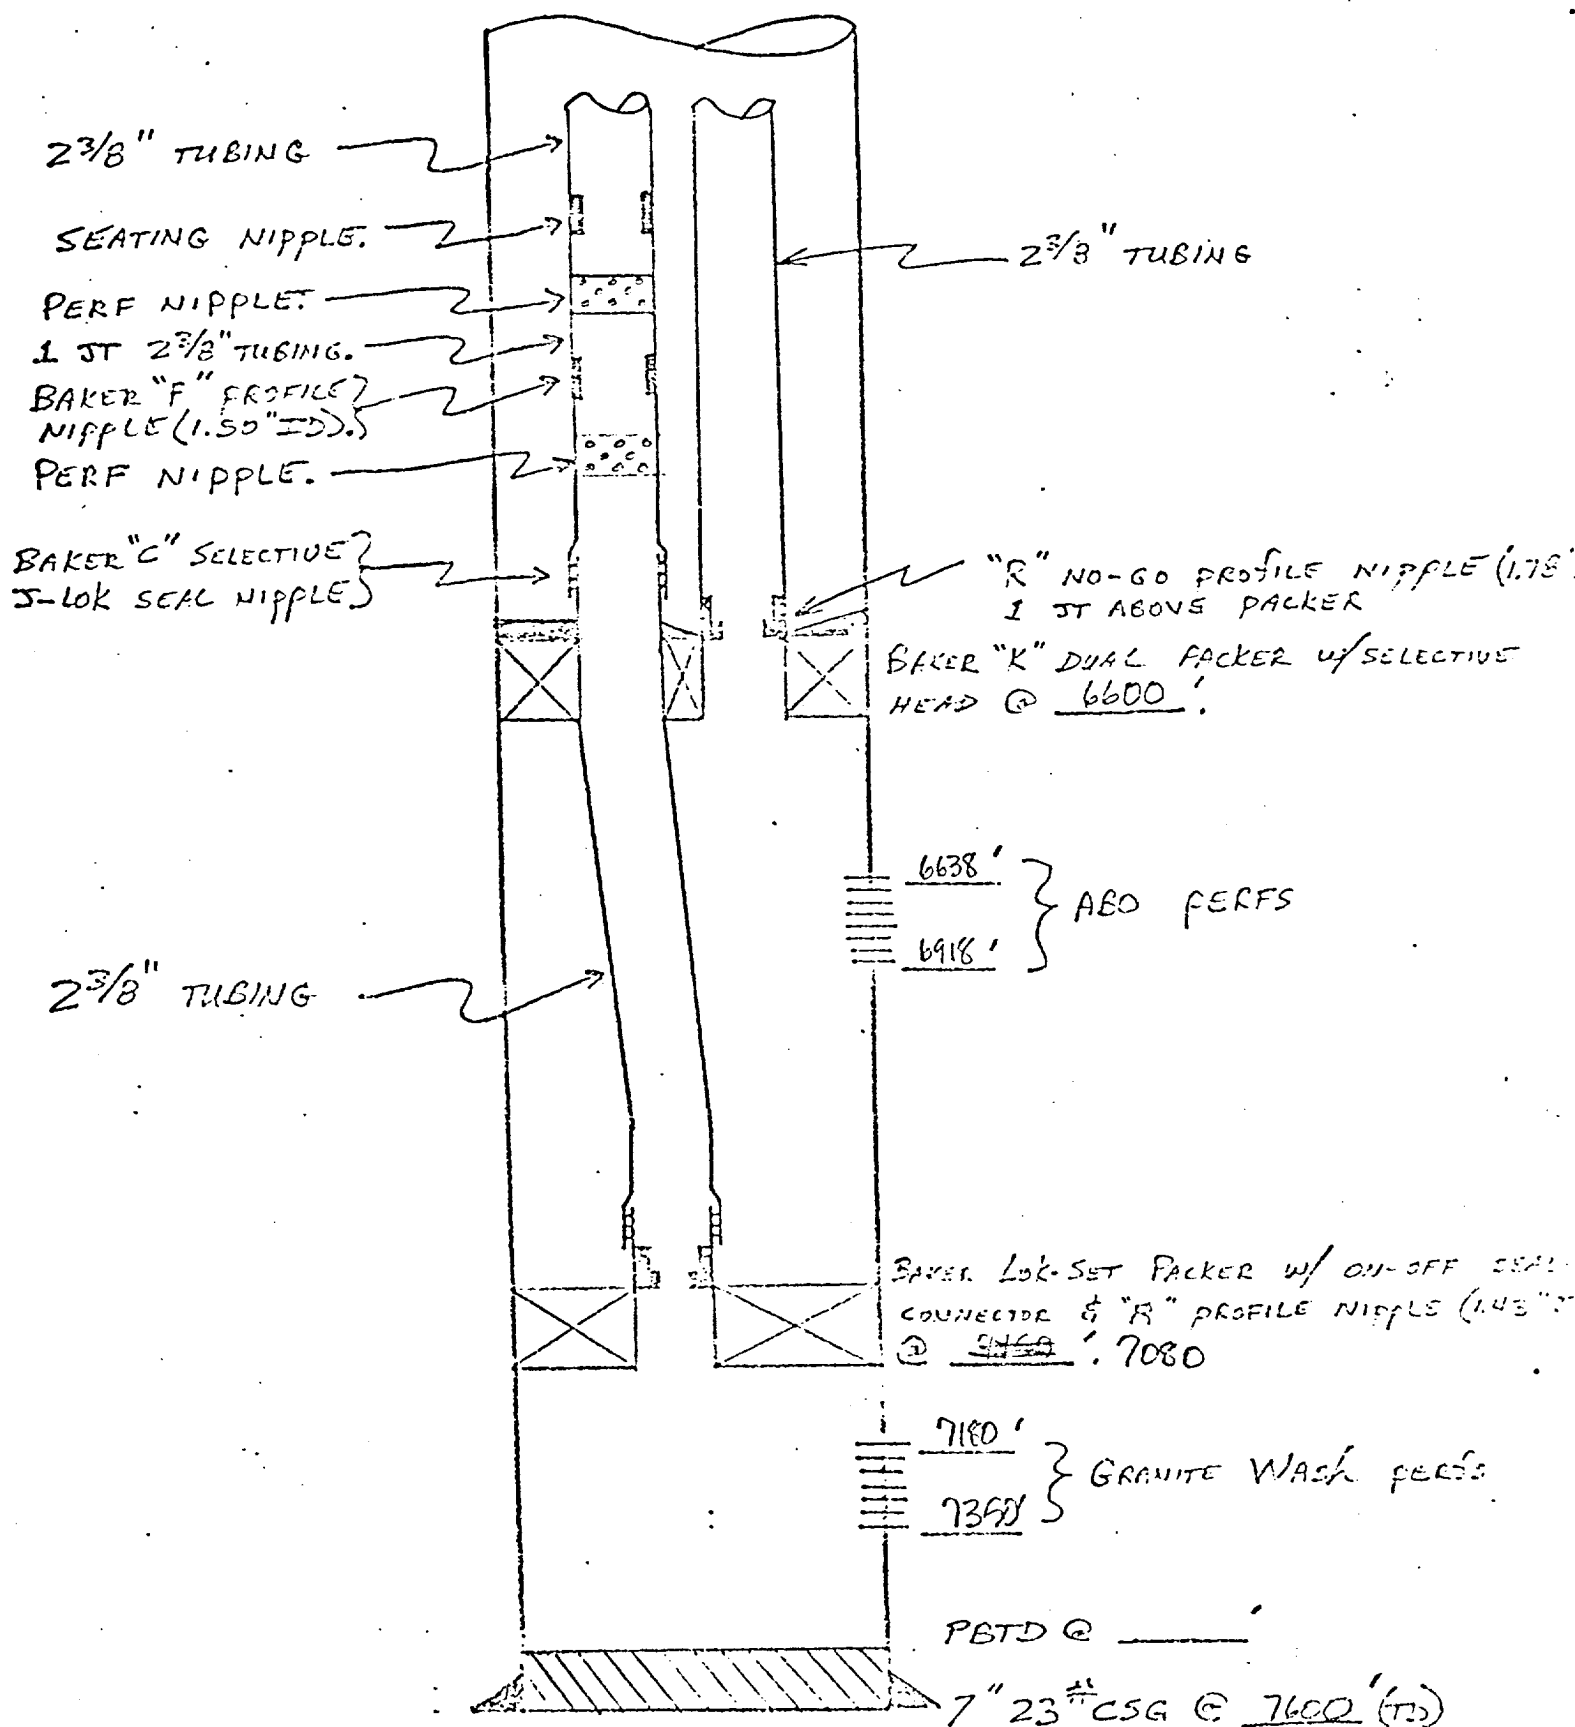 2 3/8" TUBING
SEATING NIPPLE.
PERF NIPPLE.
1 JT 2 3/8" TUBING.
BAKER "F" PROFILE
NIPPLE (1.50" ID).
PERF NIPPLE.
BAKER "C" SELECTIVE
J-LOK SEAL NIPPLE.
2 3/8" TUBING
"R" NO-GO PROFILE NIPPLE (1.78"
1 JT ABOVE PACKER
BAKER "K" DUAL PACKER W/ SELECTIVE
HEAD @ 6600'.
6638'
ABO PERFS
6918'
2 3/8" TUBING
BAKER LOK-SET PACKER W/ ON-OFF SEAL
CONNECTOR & "R" PROFILE NIPPLE (1.43"
@ '. 7080
7180'
GRANITE WASH PERFS
PBTD @ '
7" 23# CSG @ 7600' (TD)